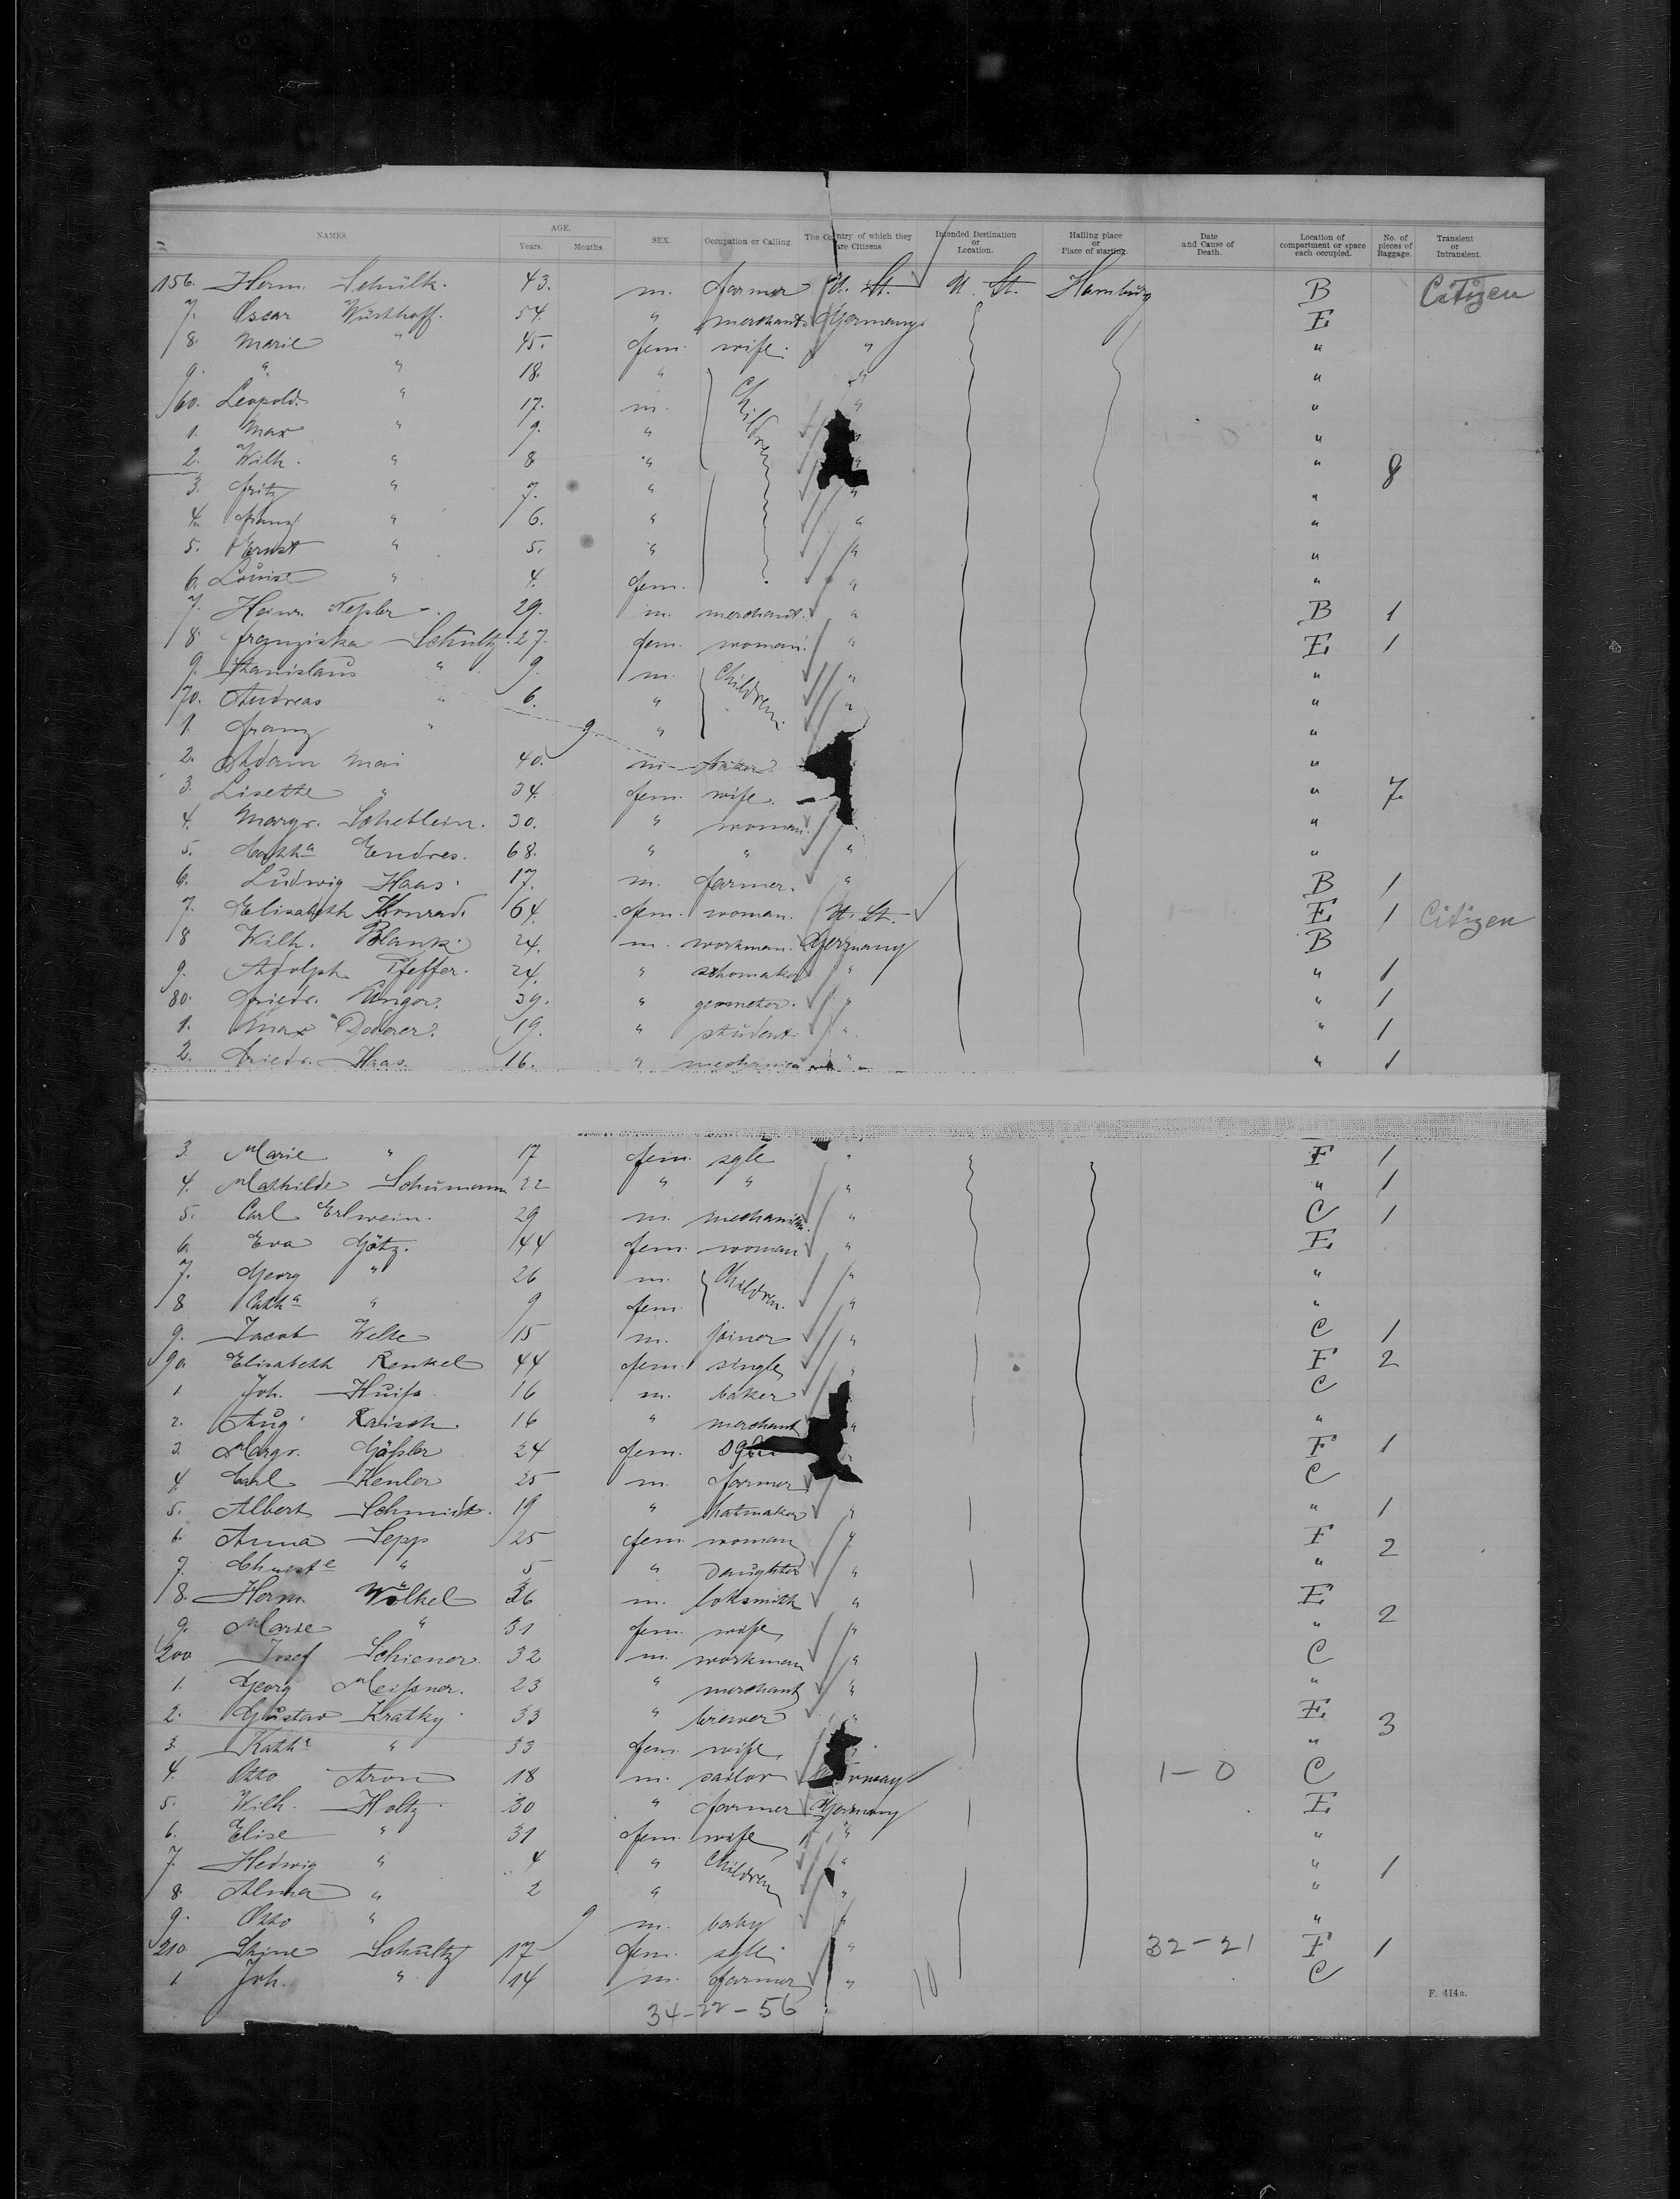 NAMES. AGE. Years. Months. SEX. Occupation or Calling. The Country of which they are Citizens Intended Destination or Location. Hailing place or Place of starting. Date and Cause of Death. Location of compartment or space each occupied. No. of pieces of Baggage. Transient or Intransient.
156. Herm. Schultk. 43. m. farmer U. St. U. St. Hamburg B Citizen
7. Oscar Wüsthoff. 54. " merchant Germany E
8. Marie " 45. fem. wife. " "
9. " " 18. " Children " "
60. Leopold " 17. m. " "
1. Max " 9. " "
2. Wilh. " 8 " " " 8
3. Fritz " 7. " " "
4. Franz " 6. " " "
5. Ernst " 5. " " "
6. Louise " 4. fem. " "
7. Heinr. Nepler 29. m. merchant. " B 1
8. Franziska Schultz. 27. fem. woman. " E 1
9. Stanislaus " 9. m. Children. " "
70. Andreas " 6. " " "
1. Franz " 9. " "
2. Adam Mai 40. m. "
3. Lisette " 34. fem. wife. " 7.
4. Margr. Scheblein. 30. " woman. "
5. Cath a Endres. 68. " " " "
6. Ludwig Haas. 17. m. farmer. " B 1
7. Elisabeth Konrad. 64. fem. woman. U. St. E 1 Citizen
8 Wilh. Blank. 24. m. workman. Germany B
9. Adolph Pfeffer. 24. " schomaker " " 1
80. Friedr. Unger. 39. " geometer. " " 1
1. Max Doderer. 19. " student. " " 1
2. Friedr. Haas. 16. " mechanica " " 1
3. Marie " 17 fem. sgle " F 1
4. Mathilde Schumann 22 " " " " 1
5. Carl Erlwein. 29 m. " C 1
6. Eva Götz. 44 fem. woman " E
7. Georg " 26 m. Children. " "
8 Cath a " 9 fem. " "
9. Jacob Welte 15 m. joiner " C 1
90 Elisabeth Renkel 44 fem. single " F 2
1 Joh. Huiss 16 m. baker C
2. Aug. Raisch. 16 " merchant " "
3. Margr. Gässler 24 fem. F 1
4. Carl Kenler 25 m. farmer C
5. Albert Schmidt. 19 " hatmaker " " 1
6. Anna Sepp 25 fem. woman " F 2
7. Christ e " 5 " Daughter " "
8. Herm. Wölkel 36 m. loksmith " E
9. Marie " 31 fem. wife " " 2
200 Josef Schiener 32 m. workman " C
1. Georg Meissner. 23 " merchant " "
2. Gustav Kratky 33 " brewer " E 3
3. Kath e " 33 fem. wife "
4. Otto Aron 18 m. sailor 1-0 C
5. Wilh. Holtz. 30 " farmer Germany E
6. Elise " 31 fem. wife " "
7. Hedwig " 4 " Children " " 1
8. Alma " 2 " " "
9. Otto " 9 m. baby " "
210 Stine Schultz 17 fem. sgle. " 32-21 F 1
1 Joh. " 14 m. farmer " 10 C
34-22-56
F. 414a.